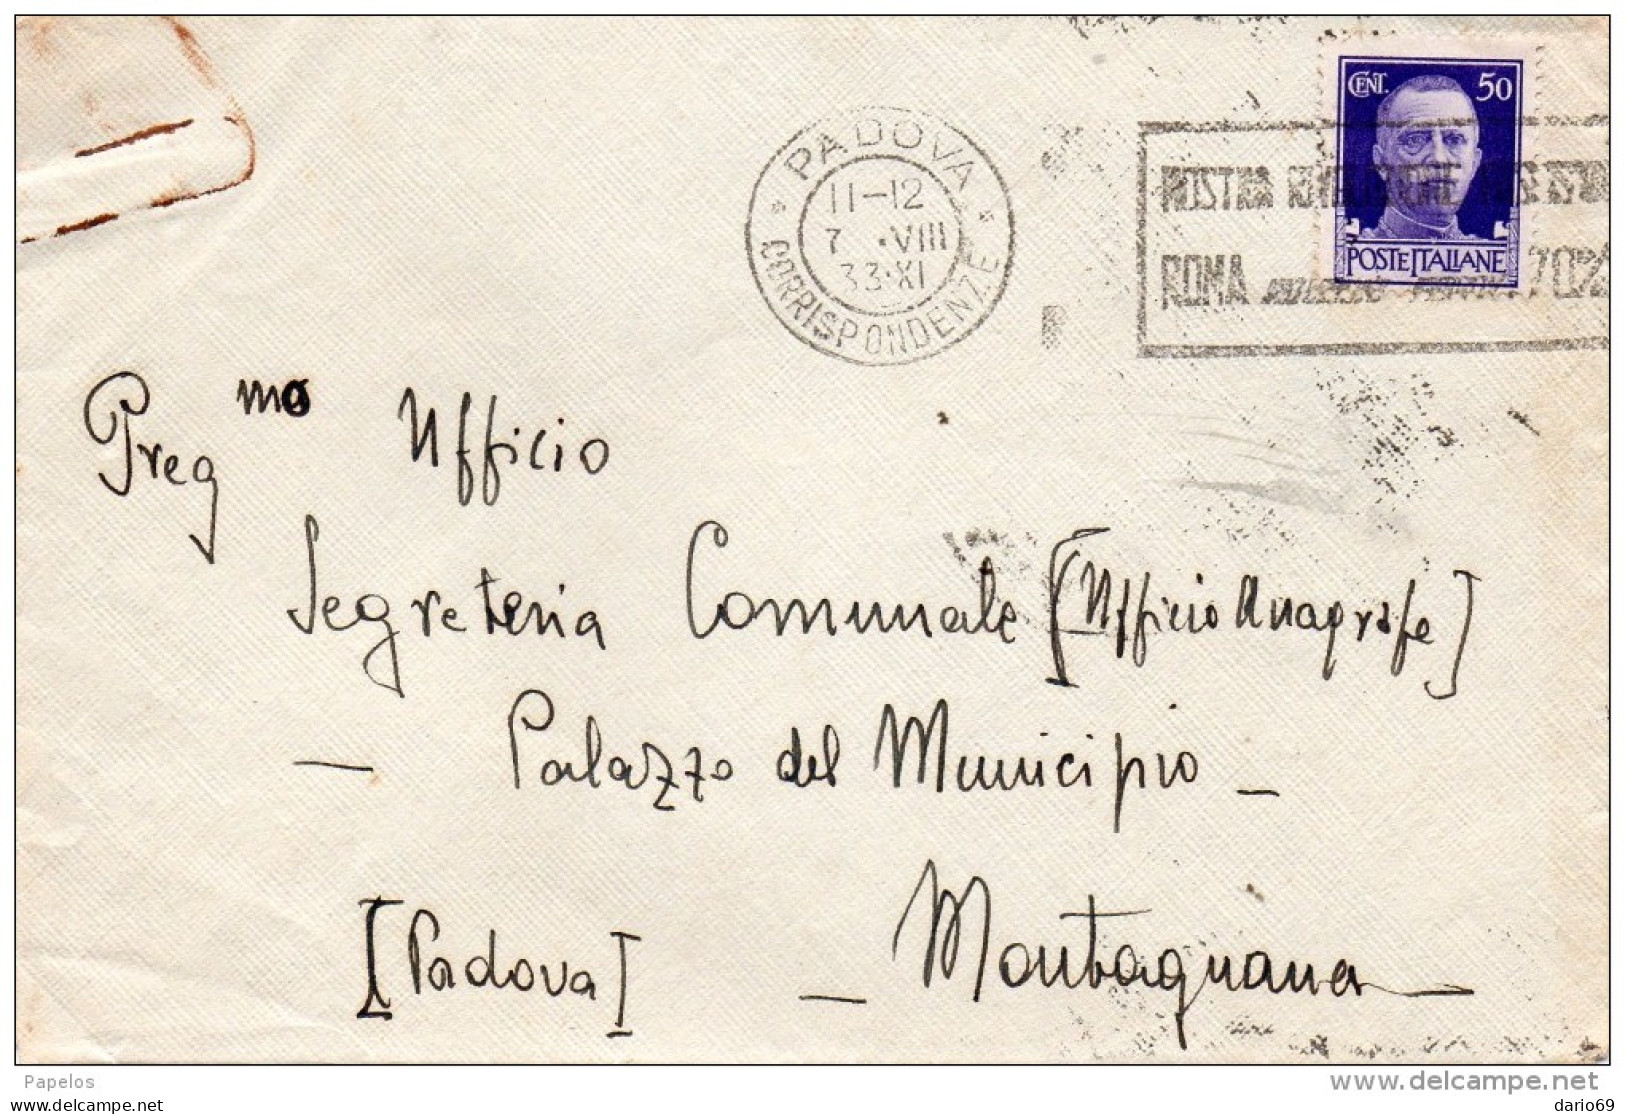 CENT. 50
POSTE ITALIANE
PADOVA
11-12
7 .VIII
33.XI
CORRISPONDENZE
MOSTRA RIVOLUZIONE
ROMA 70%
Preg mo Ufficio
Segreteria Comunale [Ufficio Anagrafe]
— Palazzo del Municipio —
[Padova] — Montagnana —
Papelos
www.delcampe.net
www.delcampe.net
dario69